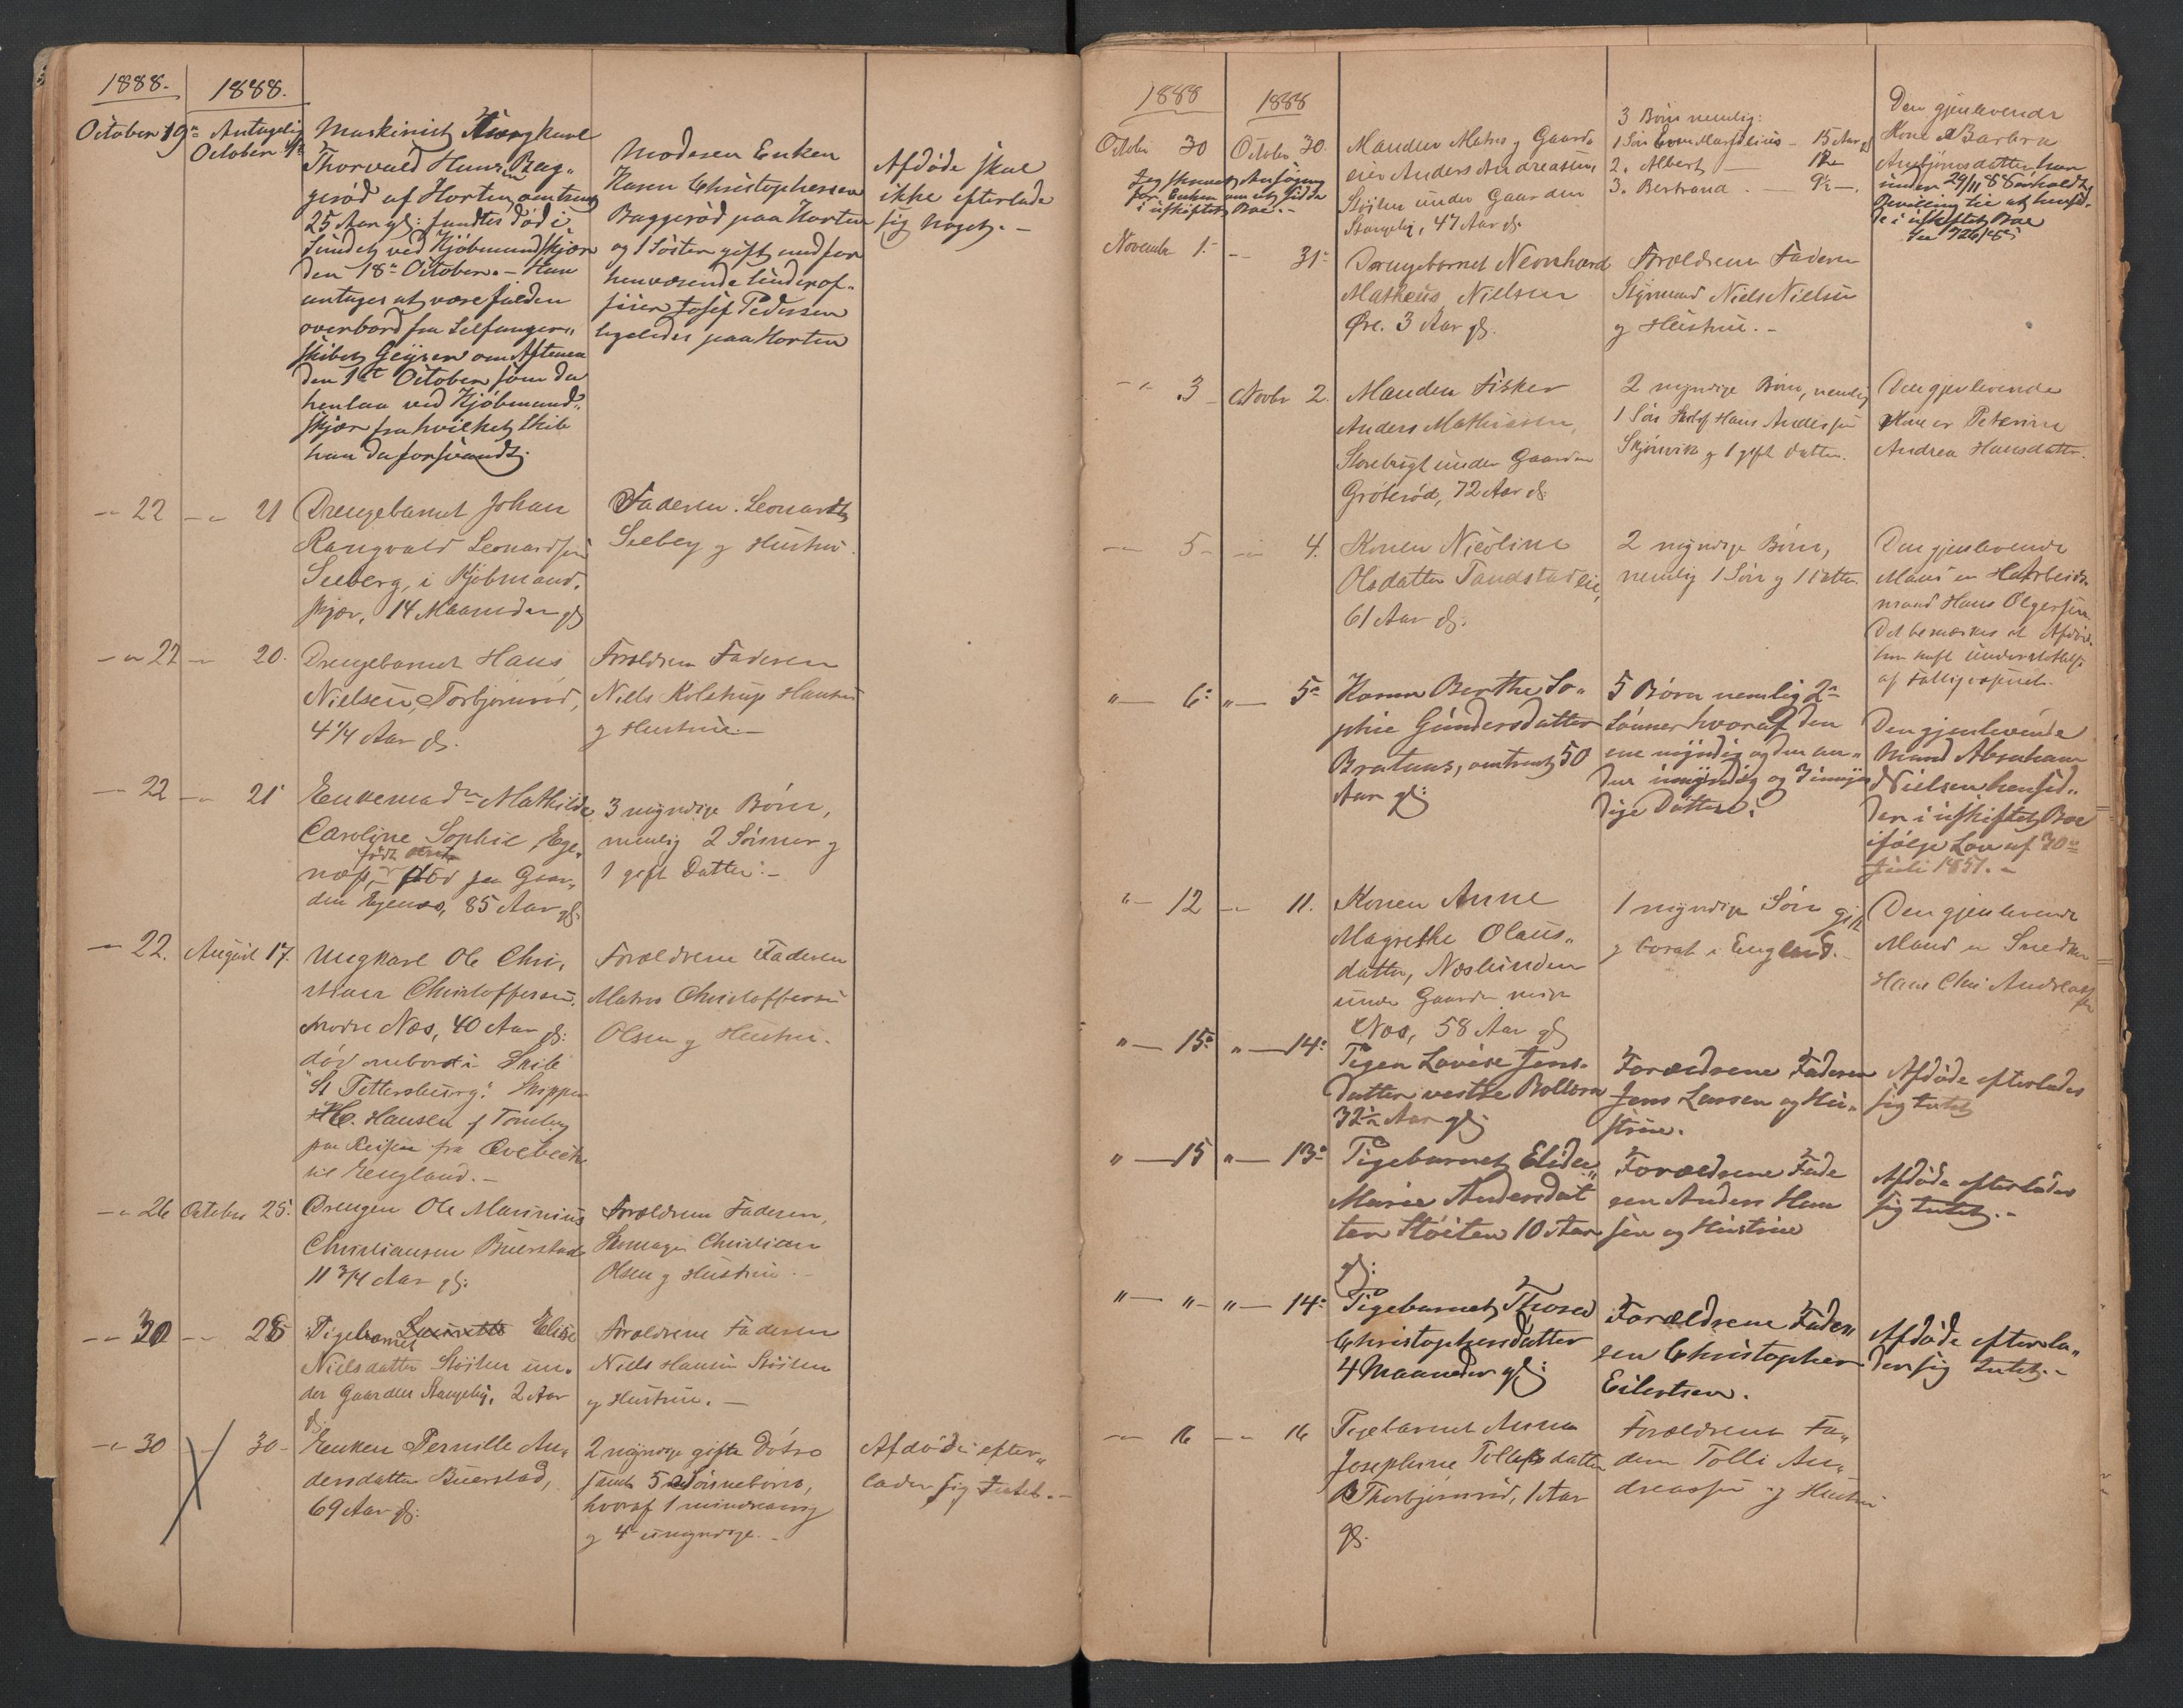 1888. 1888.
October 19de Antagelig October 1ste
Maskinist Ungkarl
Thorvald Hansen Bag-
gerød af Horten omtrent
25 Aar gl: fundtes død i
Sundet ved Kjøbmandskjær
den 18de October. - Han
antages at være falden
overbord fra Selfanger-
skibet Geysir om Aftenen
den 1ste October som da
henlaa ved Kjøbmand-
skjær fra hvilket Skib
han da forsvandt.
Moderen Enken
Karen Christophersen
Baggerød paa Horten
og 1 Søster gift med for
henværende Underof-
ficier Josef Pedersen
ligeledes paa Horten
Afdøde skal
ikke efterlade
sig noget. -
- " 22 - " 21
Drengebarnet Johan
Rangvald Leonardsen
Seeberg, i Kjøbmand-
skjær, 14 Maaneder gl
Faderen Leonardt
Seeberg og Hustru
- " 22 - " 20.
Drengebarnet Hans
Nielsen, Torbjørnrød,
4 1/4 Aar gl.
Forældrene Faderen
Niels Kolstrup Hansen
og Hustrue. -
- " 22 - " 21
Enkemadme Mathilde
Caroline Sophie, Ege-
født
næss, - død paa Gaar-
den Egenæs, 85 Aar gl.
3 myndige Børn,
nemlig 2 Sønner og
1 gift Datter. -
- " 22. August 17.
Ungkarl Ole Chri-
stian Christoffersen
Nordre Næs, 40 Aar gl:
død ombord i Skib
"St Pettersburg". Skipper
H.C. Hansen af Tønsberg
paa Reisen fra Qvebeck
til England. -
Forældrene Faderen
Matros Christoffersen
Olsen og Hustru.
- " 26 October 25.
Drengen Ole Marinius
Christiansen Buerstad
11 3/4 Aar gl:
Forældrene Faderen,
Skomager Christian
Olsen og Hustrue. -
- " 30 - " 28
Pigebarnet Laurette Elise
Nielsdatter Støiten un-
der Gaarden Stangeby, 2 Aar
gl.
Forældrene Faderen
Niels Hansen Støiten
og Hustrue. -
- " 30 - " 30-
Enken Pernille An-
dersdatter Buerstad,
69 Aar gl:
2 myndige gifte Døtre
samt 5 Sønnebørn,
hvoraf 1 mindreaarig
og 4 umyndige. -
Afdøde efter-
lader sig Intet. -
1888 1888
Octobr 30 October 30
Jeg skrevet Ansøgning
for Enken om at sidde
i uskiftet Boe. -
Manden Matros og Gaard-
eier Anders Andreassen,
Støiten under Gaarden
Stangeby, 47 Aar gl.
3 Børn nemlig:
1 Søn Even Marselius - 15 Aar gl
2. Albert - 12 -
3. Bertrand. - 9 1/2 -.
Den gjenlevende
Kone er Barbra
Ansjønsdatter har
under 29/11 88 erholdt
Bevilling til at hensid-
de i uskiftet Boe
November 1. - - 31te
Drengebarnet Neonhard
Matheus Nielsen
Øre. 3 Aar gl.
Forældrene Faderen
Styrmand Niels Nielsen
og Hustrue. -
- " 3 Novbr 2.
Manden Fisker
Anders Mathiasen,
Storebrygt under Gaarden
Grøterød, 72 Aar gl.
2 myndige Børn, nemlig
1 Søn Hans Andersen
Skjørsvik og 1 gift Datter.
Den gjenlevende
Kone er Peterine
Andrea Hansdatter.
- " 5 - " 4.
Konen Nicoline
Olsdatter Tandstadeie,
61 Aar gl.
2 myndige Børn,
nemlig 1 Søn og 1 Datter.
Den gjenlevende
Mand er Arbeids-
mand Hans Olgersen.
Det bemærkes at Afdøde
har havt Understøttelse
af Fattigvæsenet.
" - 6te " - 5te
Konen Berthe So-
phie Gundersdatter
Bratnæs, omtrent 50
Aar gl:
5 Børn nemlig 2de
Sønner hvoraf den
ene myndig og den an-
den umyndig og 3 umyn-
dige Døttre.
Den gjenlevende
Mand Abraham
Nielsen hensid-
der i uskiftet Boe
ifølge Lov af 30te
Juli 1851. -
" - 12 - " 11.
Konen Anne
Magrethe Olaus-
datter, Næslunden
under Gaarden
Næs, 58 Aar gl
1 myndig Søn gift
og bosat i England. -
Den gjenlevende
Mand er Snedker
Hans Chr: Andreassen
" - 15de " - 14de
Pigen Lovise Jens-
datter vestre Bollærn
32 1/2 Aar gl:
Forældrene Faderen
Jens Larsen og Hu-
strue.
Afdøde efterlader
sig Intet
" - 15 " - 13de
Pigebarnet Elida
Marie Andersdat
ter Støiten 10 Aar
gl:
Forældrene Fade
ren Anders Han
sen og Hustrue
Afdøde efterlader
sig Intet. -
" - " - " - 14de
Pigebarnet Thora
Christophersdatter
4 Maaneder gl:
Forældrene Fade-
ren Christopher
Eilertsen.
Afdøde efterla-
der sig Intet. -
- " 16 - " 16
Pigebarnet Anna
Josephine Tollefsdatter
Thorbjørnrød, 1 Aar
gl.
Forældrene Fa-
deren Tolli An-
dreassen og Hustru